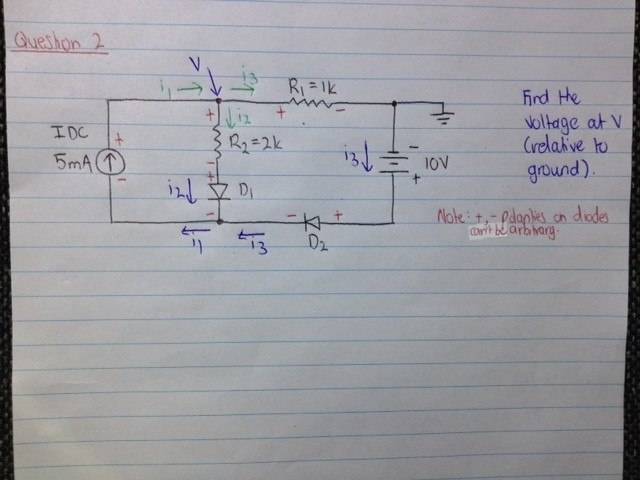 Question 2
V
i1
i3
R1 = 1k
+
-
i2
+
R2 = 2k
-
IDC
5mA
+
-
i3
-
10V
+
i2
+
D1
-
-
+
D2
i1
i3
Find the
voltage at V
(relative to
ground).
Note: +, - Polarities on diodes
can't be arbitrary.